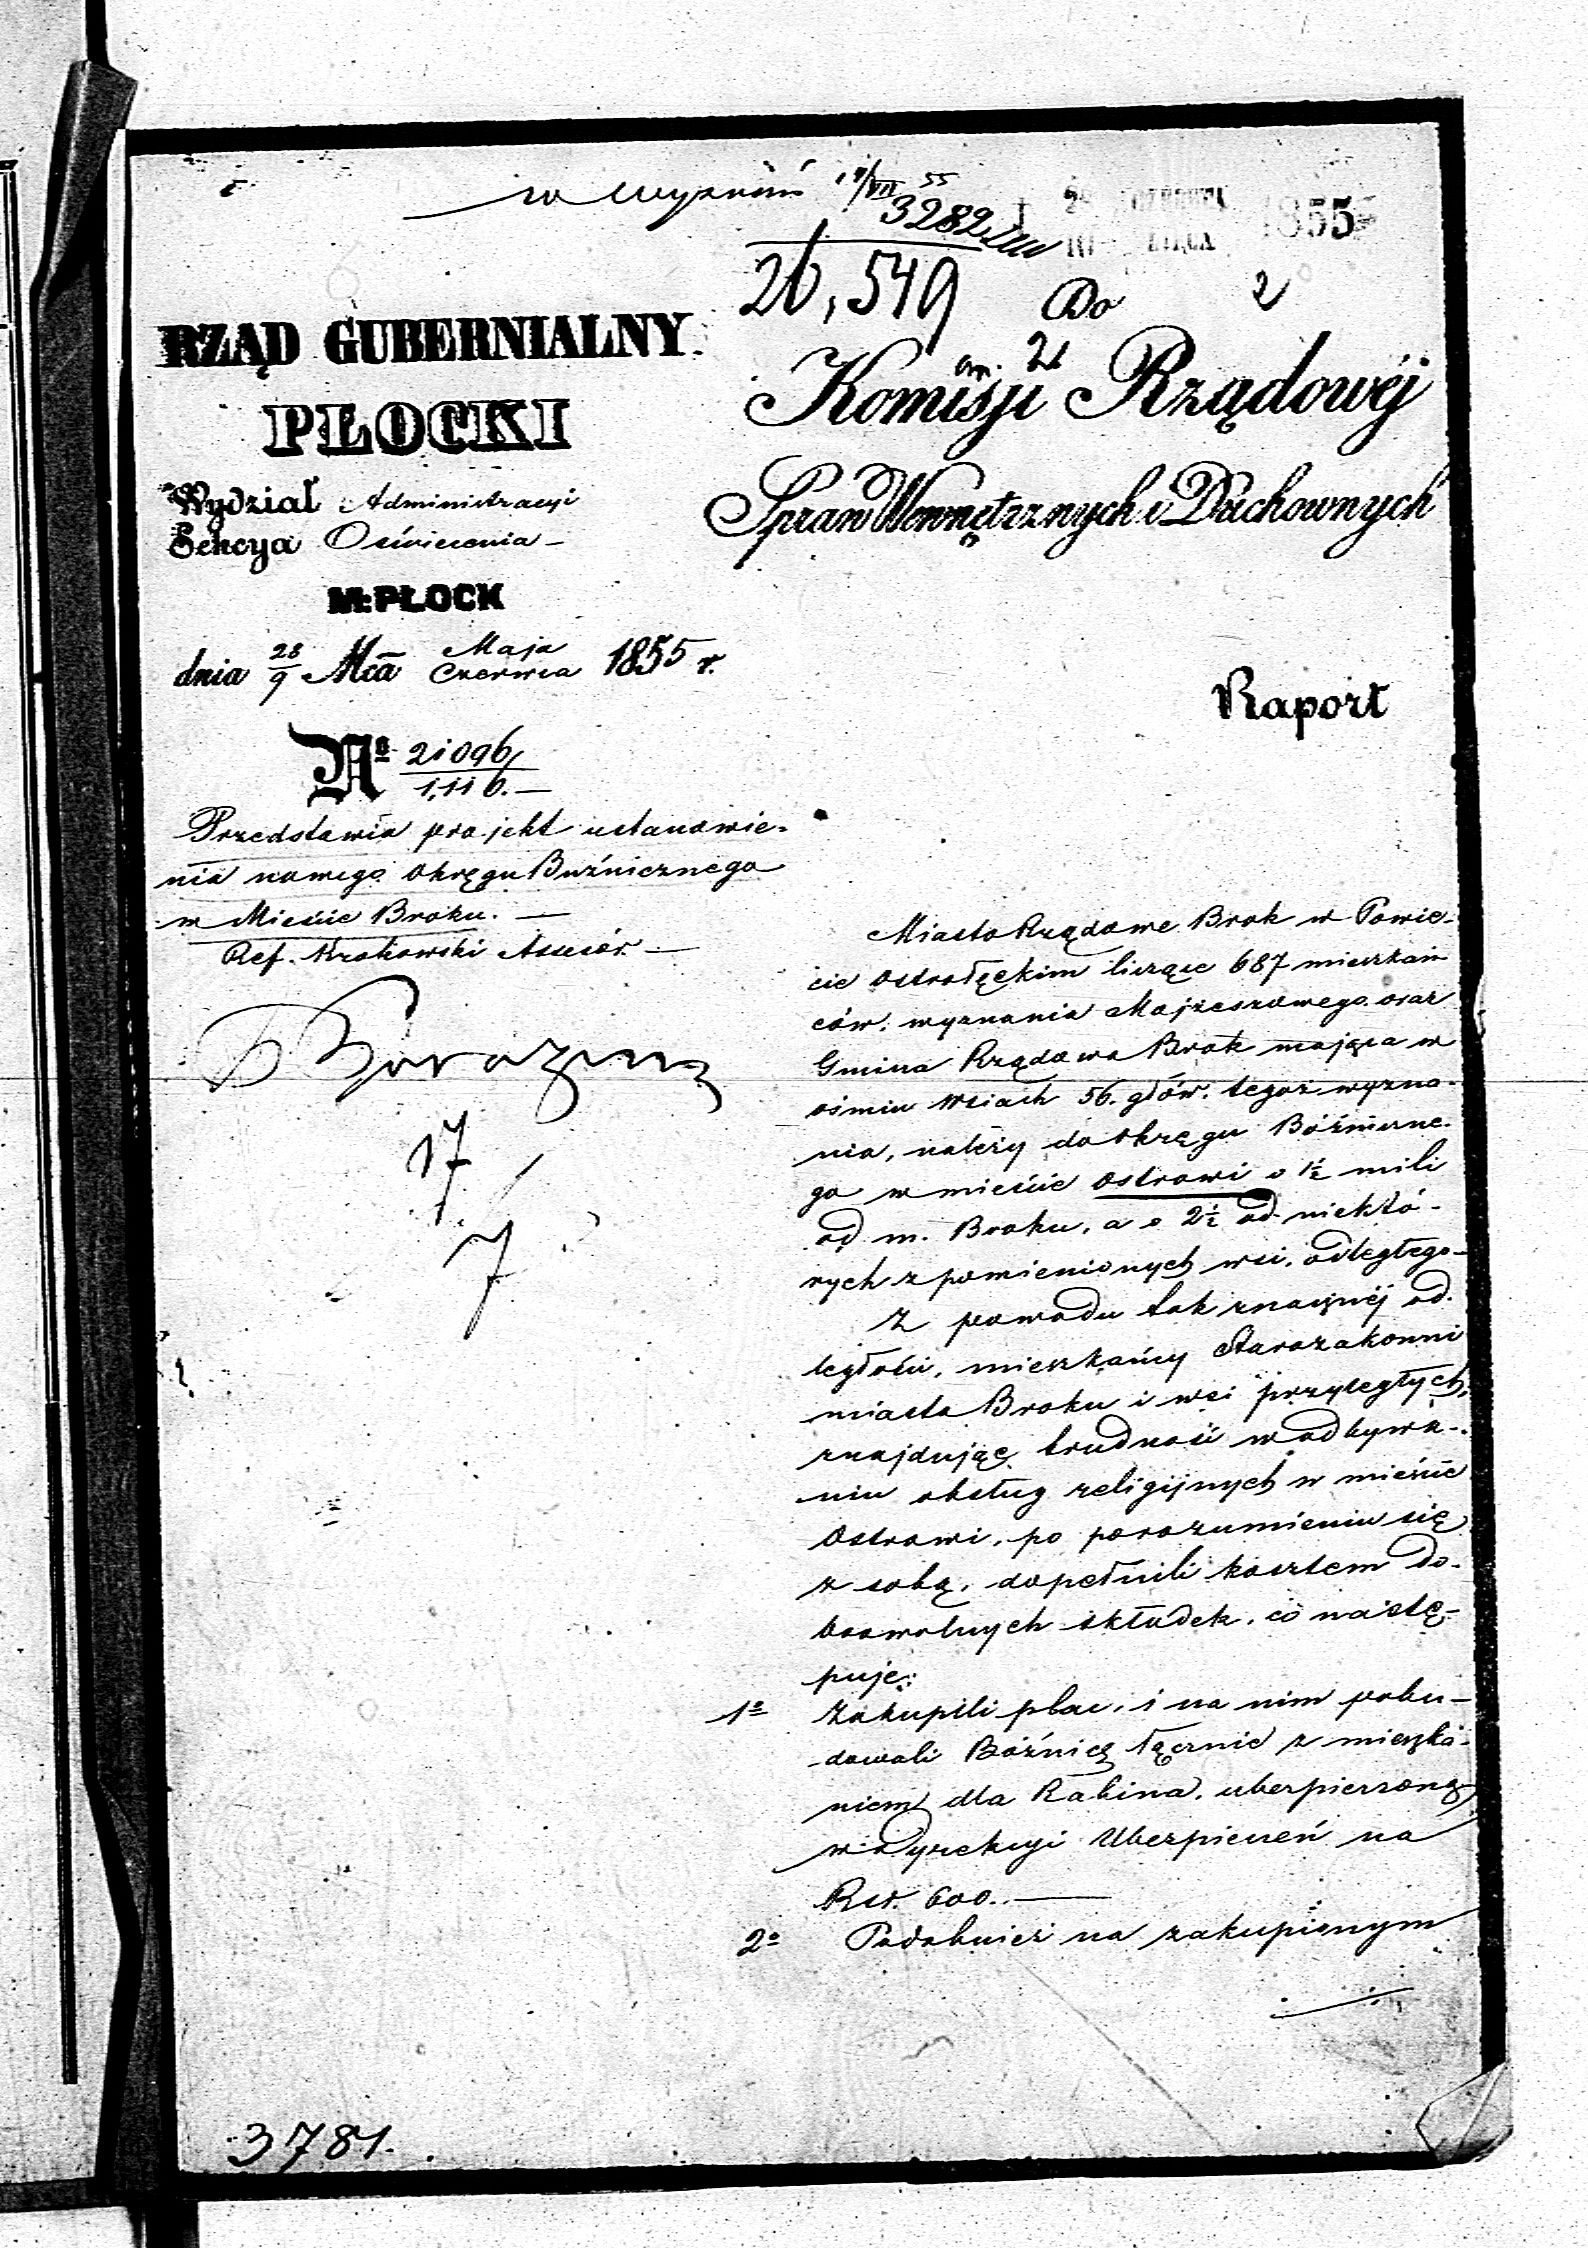 w wyznań 17/VII 55
3282
26,549
1855
2
RZĄD GUBERNIALNY
PŁOCKI
Wydział Administracyi
Sekcya Oświecenia –
M: PŁOCK
dnia 28/9 Mca Maja/Czerwca 1855 r.
No 21096/1,116. –
Przedstawia projekt ustanowie-
nia nowego okręgu Bużnicznego
w Mieście Broku. –
Ref. Krakowski Assesór. –
17
7
Do
Komisji Rządowéj
Spraw Wewnętrznych i Duchownych
Raport
Miasto Rządowe Brok w Powie-
cie Ostrołęckim liczące 687 mieszkań
ców, wyznania Mojżeszowego oraz
Gmina Rządowa Brok mająca w
ośmiu wsiach 56. głów. tegoż wyzna-
nia, należy do Okręgu Bóżniczne-
go w mieście Ostrowi o 1½ mili
od m. Broku, a o 2½ od niektó-
rych z pomienionych wsi, odległego –
Z powodu tak znacznéj od-
ległości, mieszkańcy Starozakonni
miasta Broku i wsi przyległych,
znajdując trudność w odbywa-
niu obsług religijnych w mieście
Ostrowi, po porozumieniu się
z sobą, dopełnili kosztem do-
browolnych składek, co nastę-
puje:
1o Zakupili plac, i na nim pobu-
dowali Bóżnicę łącznie z mieszka-
niem dla Rabina, ubezpieczoną
w Dyrekcyi Ubezpieczeń na
Rsr. 600. –
2o Podobnież na zakupionym
3781.